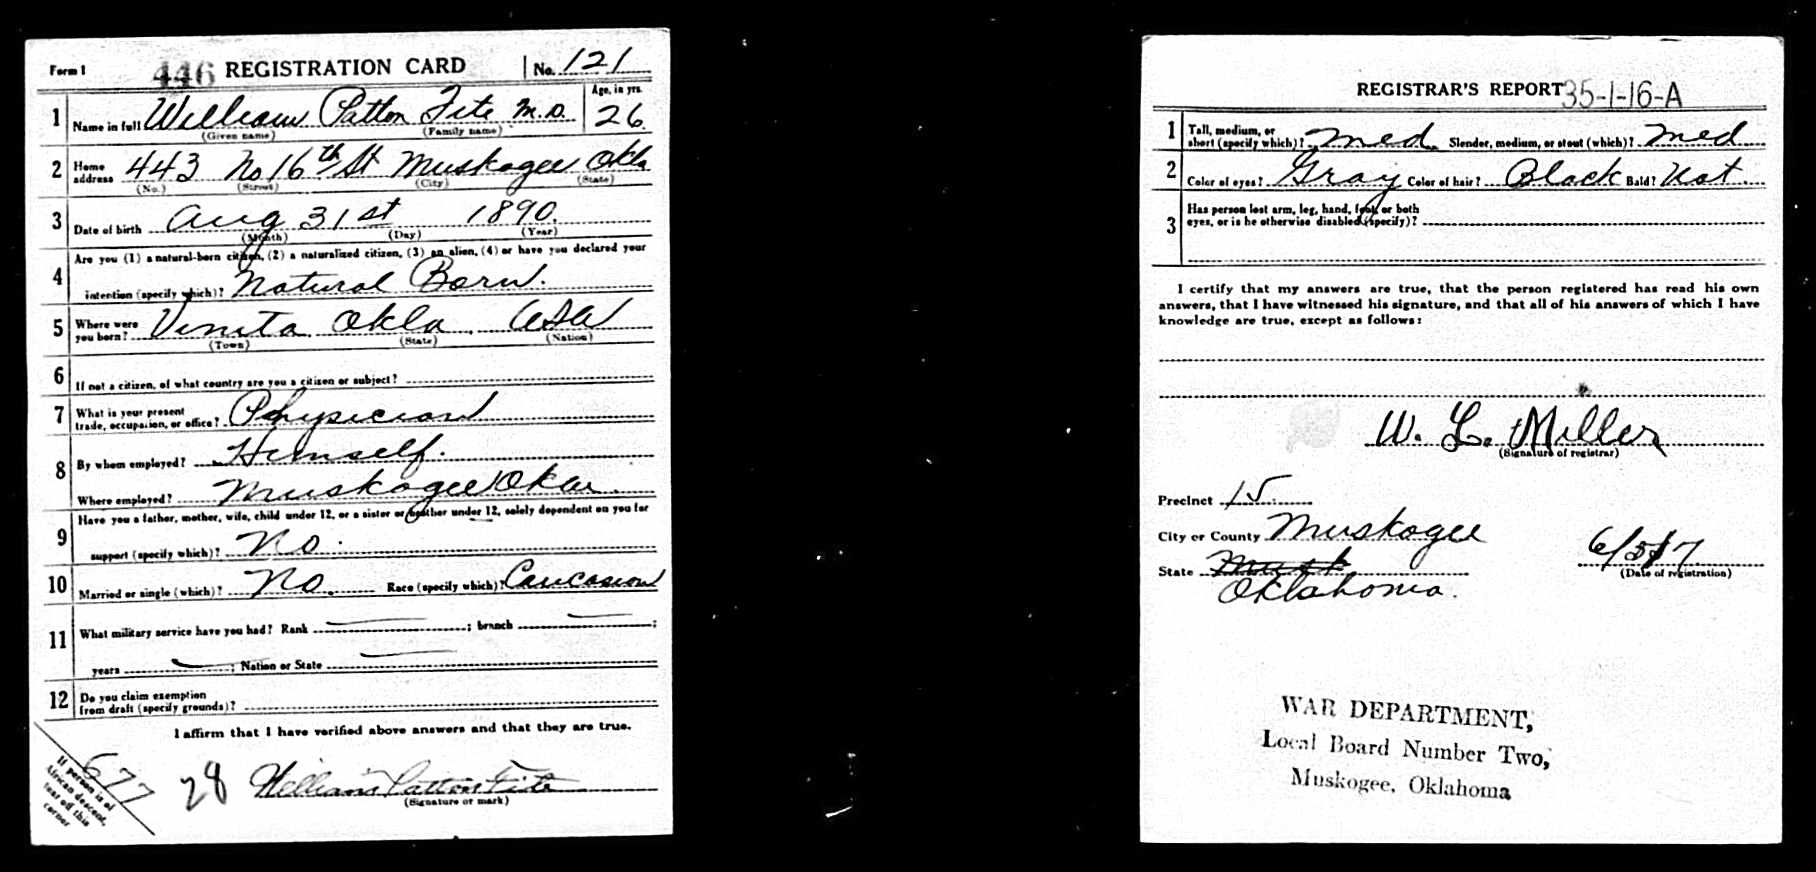 Form 1 446 REGISTRATION CARD No. 121
1 Name in full William Patton Fite M.D. Age, in yrs. 26
(Given name) (Family name)
2 Home address 443 No 16th St Muskogee Okla
(No.) (Street) (City) (State)
3 Date of birth Aug 31st 1890
(Month) (Day) (Year)
4 Are you (1) a natural-born citizen, (2) a naturalized citizen, (3) an alien, (4) or have you declared your
intention (specify which)? Natural Born.
5 Where were you born? Vinita Okla. USA
(Town) (State) (Nation)
6 If not a citizen, of what country are you a citizen or subject?
7 What is your present trade, occupation, or office? Physician
8 By whom employed? Himself.
Where employed? Muskogee Okla.
9 Have you a father, mother, wife, child under 12, or a sister or brother under 12, solely dependent on you for
support (specify which)? No.
10 Married or single (which)? No. Race (specify which)? Caucasion
11 What military service have you had? Rank ; branch ;
years ; Nation or State
12 Do you claim exemption from draft (specify grounds)?
I affirm that I have verified above answers and that they are true.
If person is of African descent, tear off this corner
677
28 William Patton Fite
(Signature or mark)
REGISTRAR'S REPORT 35-1-16-A
1 Tall, medium, or short (specify which)? Med. Slender, medium, or stout (which)? Med
2 Color of eyes? Gray Color of hair? Black Bald? Not
3 Has person lost arm, leg, hand, foot, or both
eyes, or is he otherwise disabled (specify)?
I certify that my answers are true, that the person registered has read his own
answers, that I have witnessed his signature, and that all of his answers of which I have
knowledge are true, except as follows:
W. L. Miller
(Signature of registrar)
Precinct 15
City or County Muskogee
6/5/17
State Musk
(Date of registration)
Oklahoma.
WAR DEPARTMENT,
Local Board Number Two,
Muskogee, Oklahoma